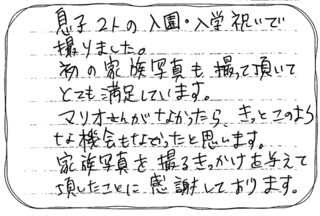 息子2人の入園・入学祝いで
撮りました。
初の家族写真も撮って頂いて
とても満足しています。
マリオさんがなかったら、きっとこのよう
な機会もなかったと思います。
家族写真を撮るきっかけを与えて
頂したことに感謝しております。